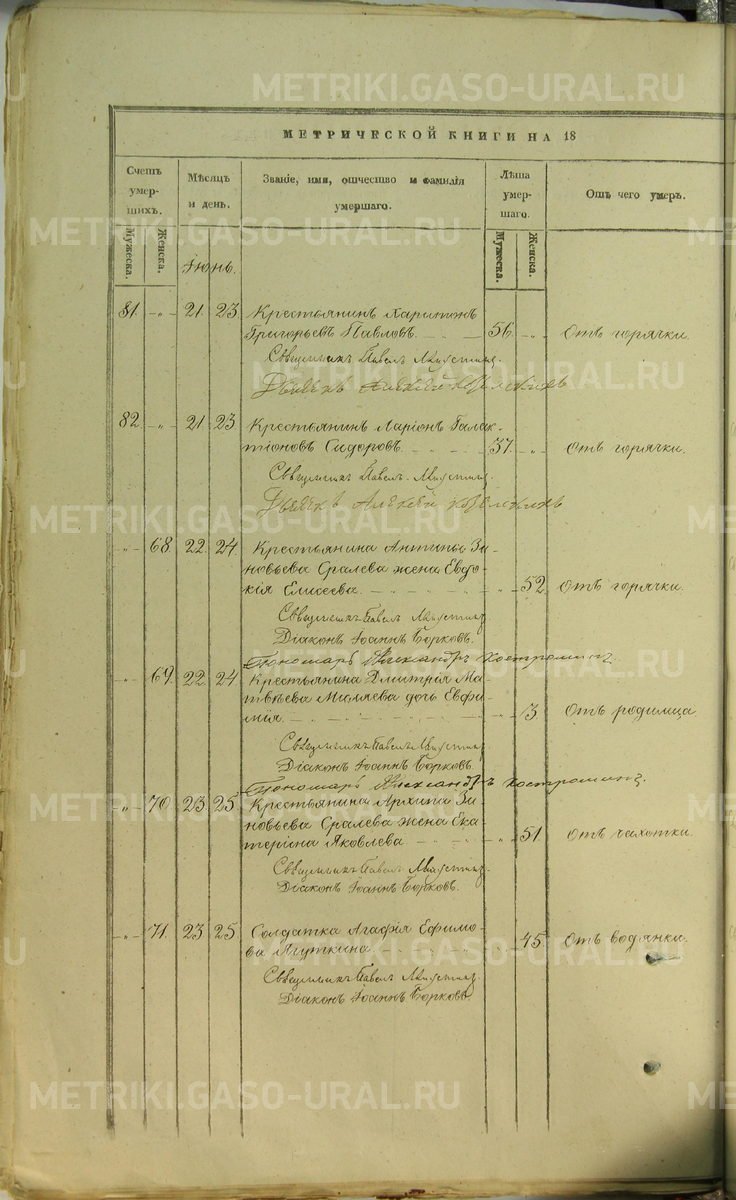 METRIKI.GASO-URAL.RU
МЕТРИЧЕСКОЙ КНИГИ НА 18
Счетъ умершихъ.
Мужеска. Женска.
Мѣсяцъ и день.
Званіе, имя, отчество и фамилія умершаго.
Лѣта умершаго.
Мужеска. Женска.
Отъ чего умеръ.
Іюнь.
81. -"- 21. 23. Крестьянинъ Харитонъ
Григорьевъ Павловъ. 56. -"- Отъ горячки.
Священникъ Павелъ
Дьячекъ Алексей
82. -"- 21. 23. Крестьянинъ Ларіонъ Галак-
тіоновъ Сидоровъ. 37. -"- Отъ горячки.
Священникъ Павелъ
Дьячекъ Алексей
-"- 68. 22. 24. Крестьянина Антипы Зи-
новьева Сралева жена Евдо-
кія Елисеева. -"- 52. Отъ горячки.
Священникъ Павелъ
Діаконъ Іоаннъ Борковъ.
Пономарь Александръ Костроминъ
-"- 69. 22. 24. Крестьянина Дмитрія Ма-
твѣева Миляева дочь Евфи-
мія. -"- 3. Отъ родимца
Священникъ Павелъ
Діаконъ Іоаннъ Борковъ.
Пономарь Александръ Костроминъ.
-"- 70. 23. 25. Крестьянина Архипа Зи-
новьева Сралева жена Ека-
терина Яковлева -"- 51. Отъ чахотки.
Священникъ Павелъ
Діаконъ Іоаннъ Борковъ.
-"- 71. 23. 25. Солдатка Агафія Ефимо-
ва Ягуткина -"- 45. Отъ водянки.
Священникъ Павелъ
Діаконъ Іоаннъ Борковъ